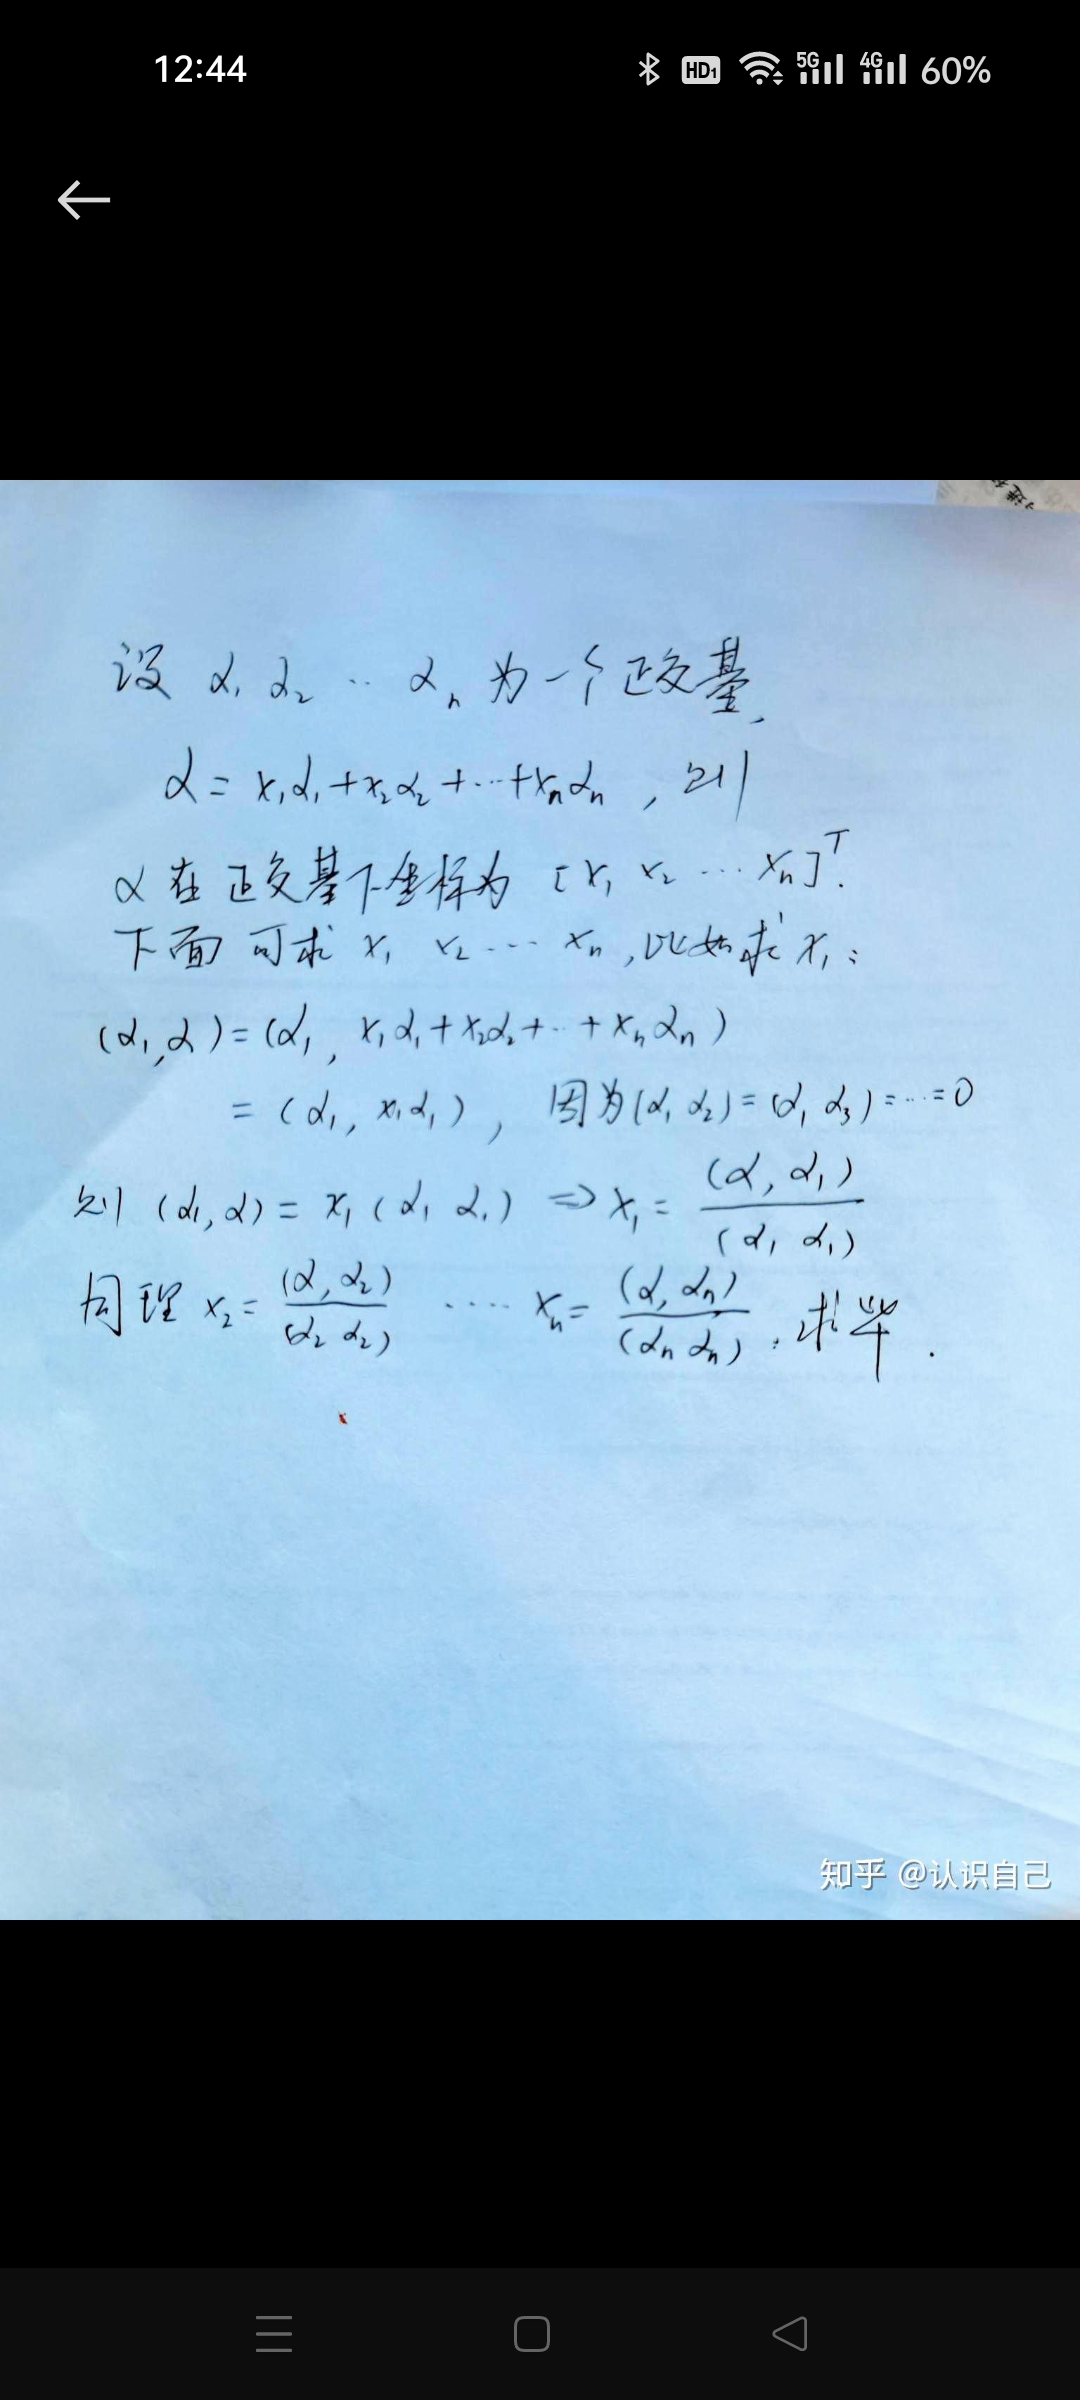 12:44 HD1 5G 4G 60%
设 α₁ α₂ ‥ αₙ 为一个正交基,
α = x₁α₁+x₂α₂+…+xₙαₙ , 则
α 在 正交基下坐标为 [x₁ x₂ … xₙ]ᵀ.
下面 可求 x₁ x₂ … xₙ ,比如求 x₁ :
(α₁,α)=(α₁, x₁α₁+x₂α₂+‥+xₙαₙ)
= (α₁, x₁α₁) , 因为(α₁ α₂)=(α₁ α₃)=…=0
则 (α₁,α)= x₁ (α₁ α₁) ⇒ x₁ = (α, α₁) / (α₁ α₁)
同理 x₂= (α, α₂) / (α₂ α₂) …. xₙ= (α, αₙ) / (αₙ αₙ) . 求毕 .
知乎 @认识自己